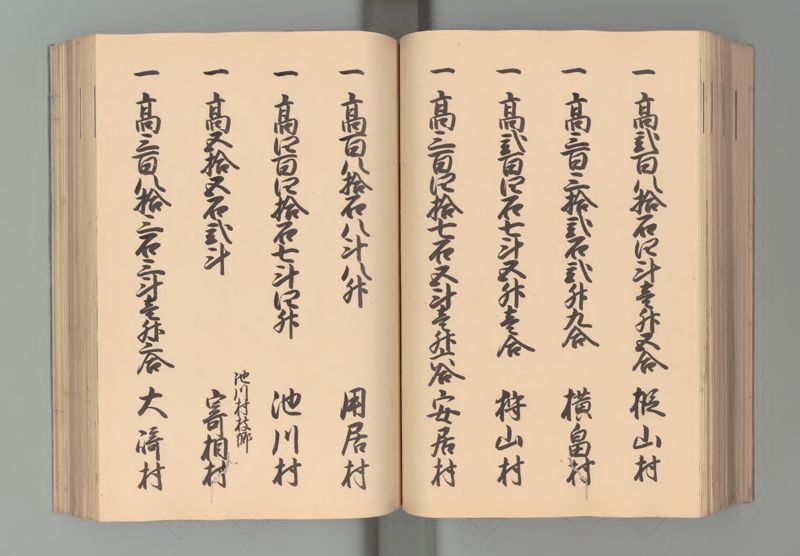 一 高弐百八拾石四斗壱升五合 樅山村
一 高三百三拾弐石弐升九合 横畠村
一 高弐百四石七斗五升壱合 桙山村
一 高三百四拾七石五斗壱升六合 安居村
一 高百八拾石八斗八升 用居村
一 高四百四拾石七斗四升 池川村
一 高五拾五石弐斗 池川村枝郷 寄相村
一 高三百八拾三石三斗壱升六合 大崎村